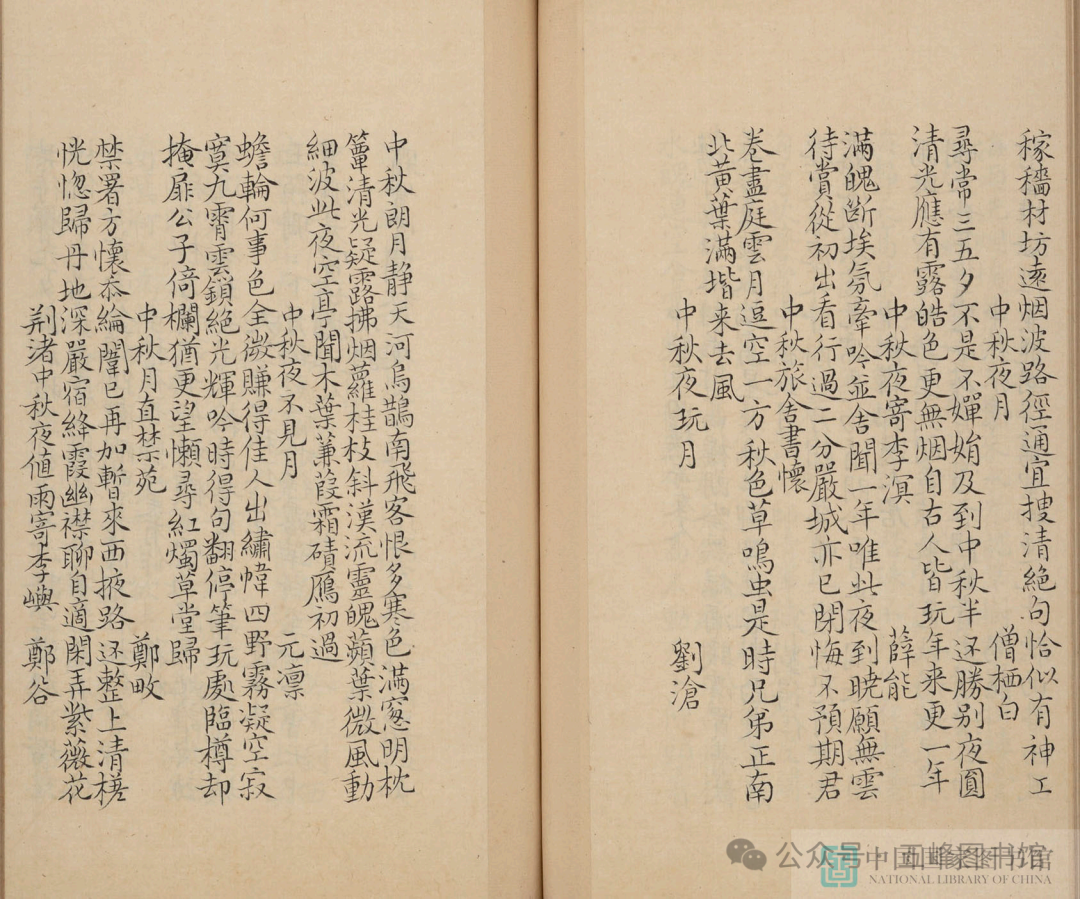 稼穡材坊遠烟波路徑通宜搜清絕句恰似有神工
中秋夜月 僧栖白
尋常三五夕不是不嬋娟及到中秋半还勝别夜圓
清光應有露皓色更無烟自古人皆玩年来更一年
中秋夜寄李溟 薛能
滿魄斷埃氛牽吟並舍聞一年唯此夜到曉願無雲
待賞從初出看行過二分嚴城亦已閉悔不預期君
中秋旅舍書懷
卷盡庭雲月逗空一方秋色草鳴虫是時兄弟正南
北黃葉滿堦来去風
中秋夜玩月 劉滄
中秋朗月静天河烏鵲南飛客恨多寒色滿窓明枕
簟清光疑露拂烟蘿桂枝斜漢流靈魄蘋葉微風動
細波此夜空亭聞木葉蒹葭霜磧鴈初過
中秋夜不見月 元凛
蟾輪何事色全微賺得佳人出繡幃四野霧凝空寂
寞九霄雲鎖絕光輝吟時得句翻停筆玩處臨樽却
掩扉公子倚欄猶更望懶尋紅燭草堂歸
中秋月直禁苑 鄭畋
禁署方懷忝綸闈已再加暫來西掖路还整上清槎
恍惚歸丹地深嚴宿絳霞幽襟聊自適閑弄紫薇花
荆渚中秋夜值雨寄李嶼 鄭谷
公众号·西峰图书馆
中国国家图书馆
NATIONAL LIBRARY OF CHINA